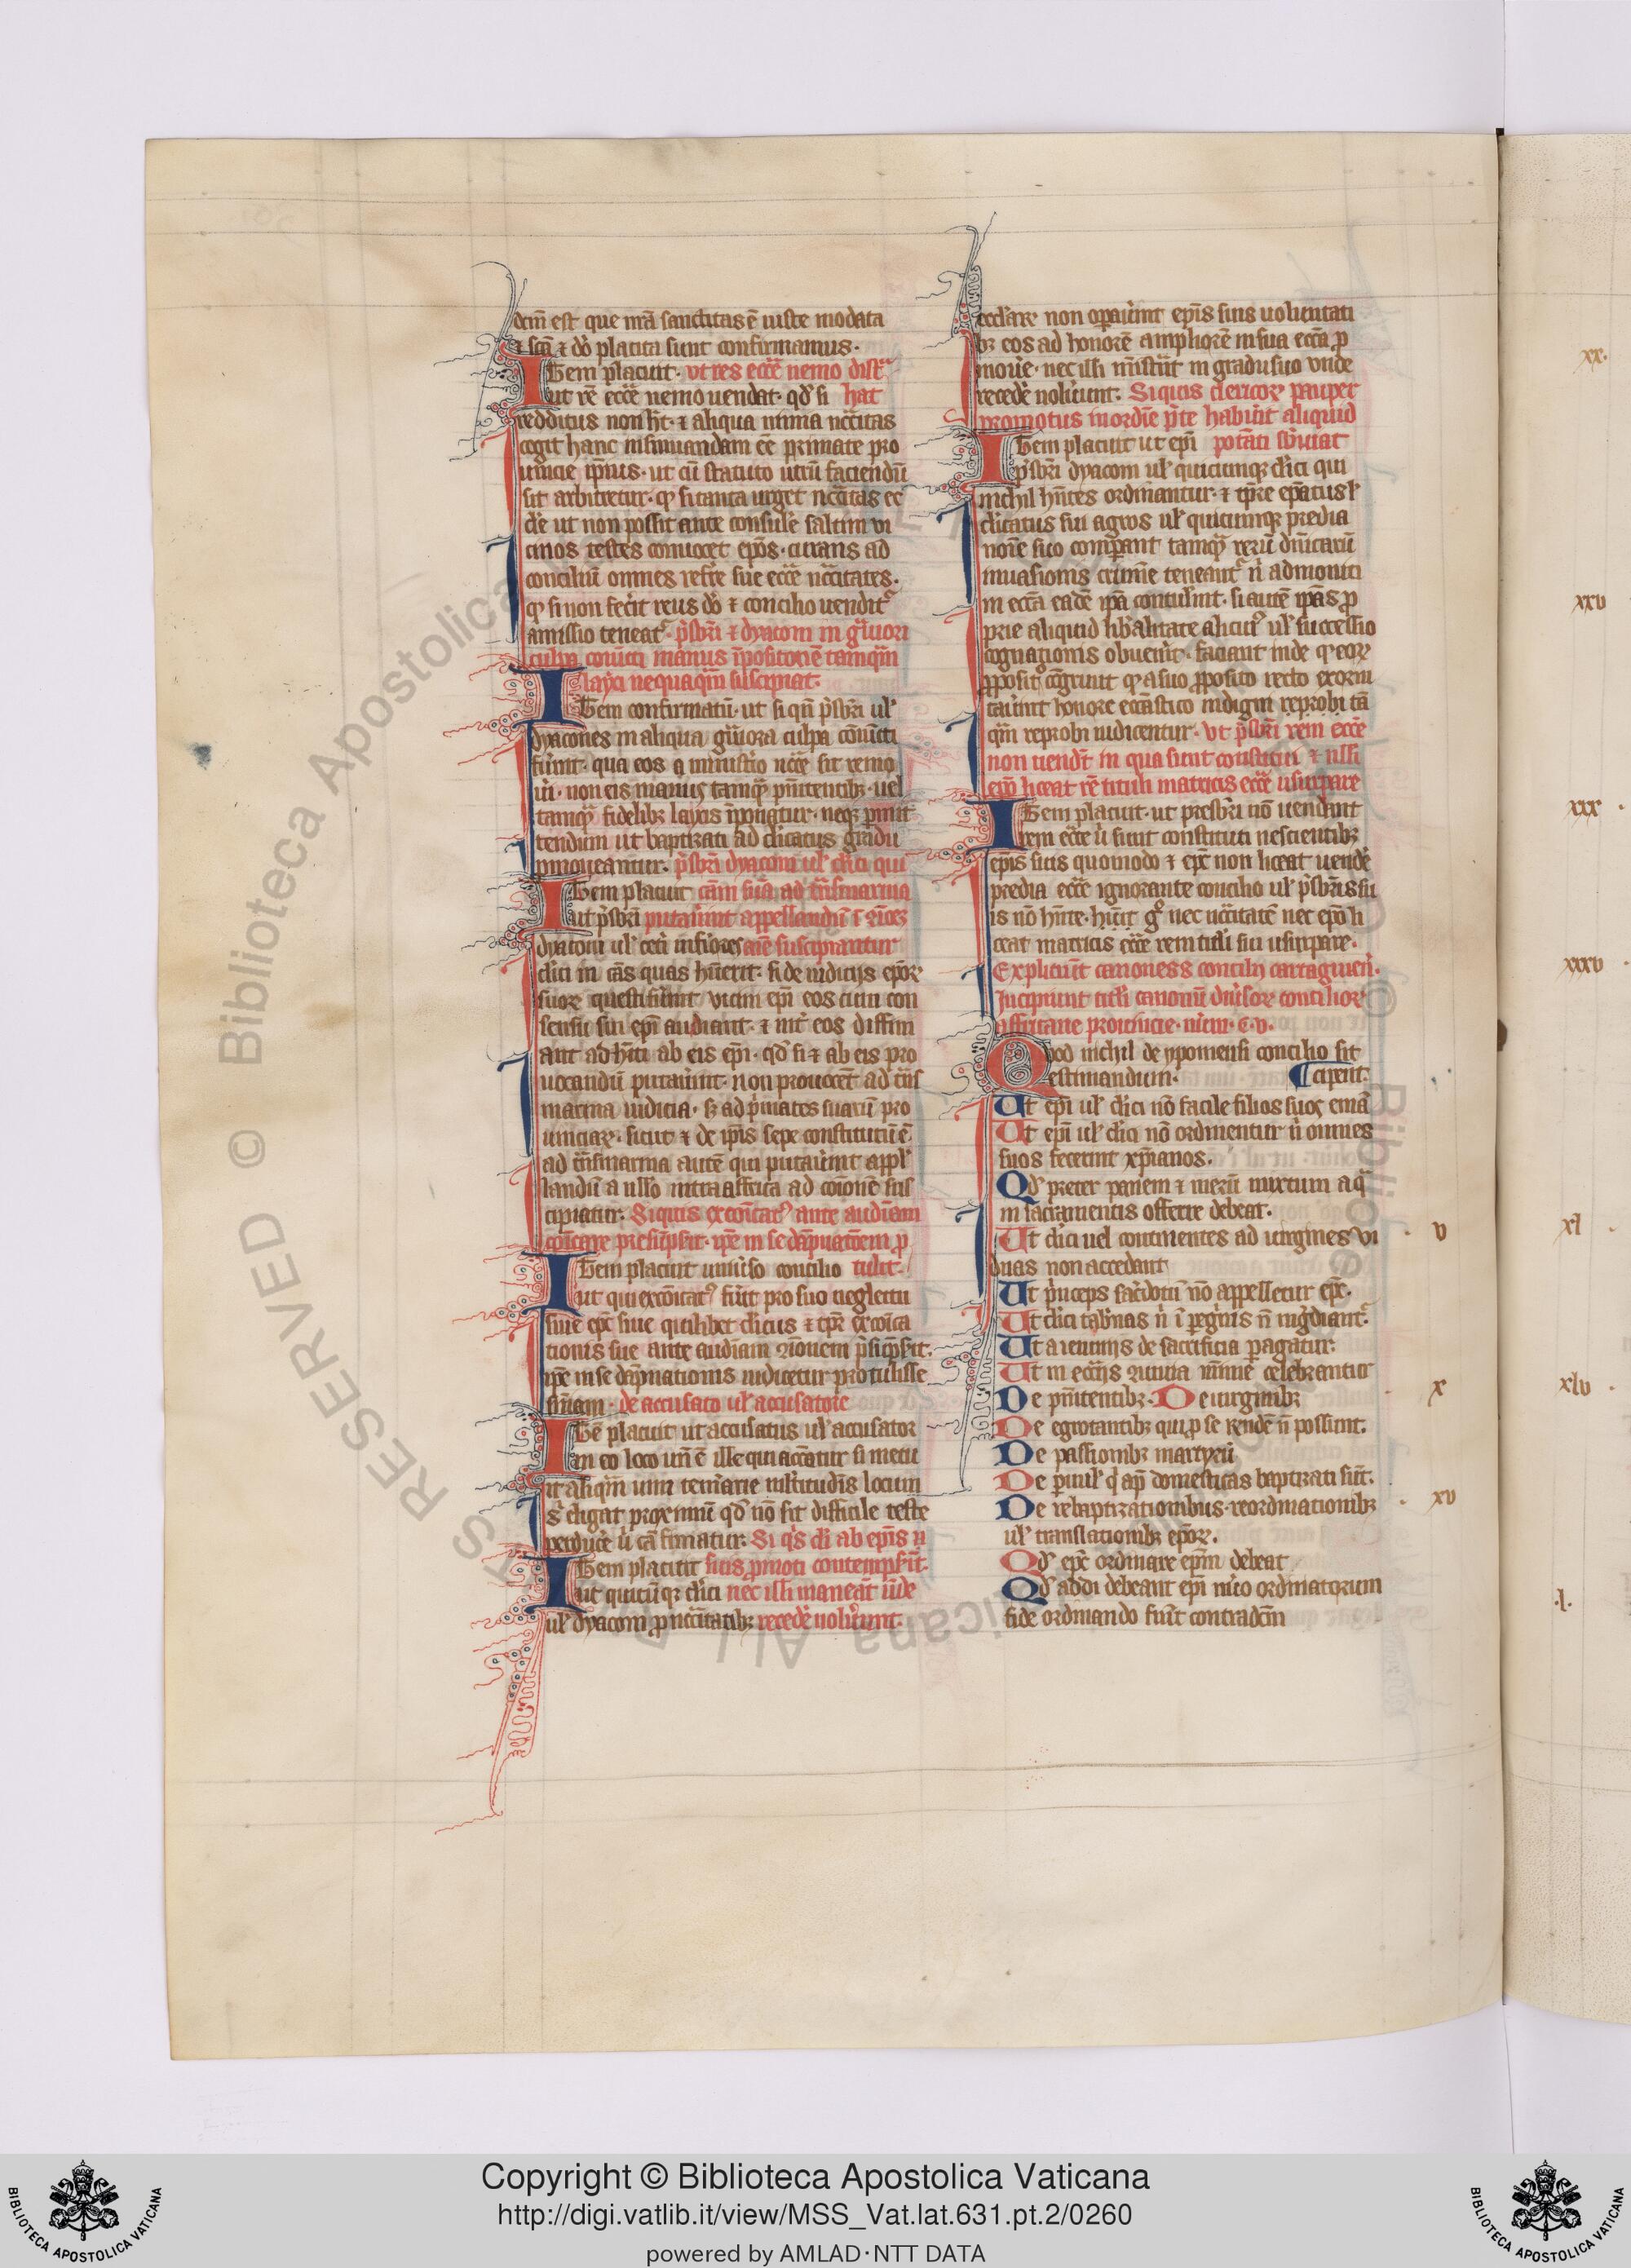 dem est que nr̄a sanctitas ē iuste modata
⁊ sc̄a ⁊ dō placita sunt confirmamus.
Item placuit. vt res ecc̄e nemo dist̄
ut rē ecc̄e nemo uendat. qd̓ si hat
redditus non hn̄t. ⁊ aliqua nimia nccītas
cogit hanc insinuandam eē primate pro
uincie ip̄ius. ut cū statuto utrū faciendū
sit arbitretur. qͥ si tanta urget nccītas ec
dē ut non possit ante consule saltim ui
cinos testes conuocet ep̄os. curans ad
conciliū omnes referre sue ecc̄e nccītates.
qͥ si non fecīt reus dō ⁊ concilio uendit᷒
amissio teneat᷒. p̄sbr̄i ⁊ dyaconi in gͣuiori
culpa conuicti manus īpositionē tamqͣm
layci nequaqͣm suscipiat.
Item confirmatū. ut si qn̄ p̄sbr̄i ul̓
dyacones in aliqua gͣuiora culpa conuicti
fūint. qua eos a ministīo nccē sit remo
uī. non eis manus tamqͣ pn̄itentibꝫ. uel
tamqͣ fidelibꝫ laycis īponatur. neqꝫ ꝑmit
tendum ut baptizati ad cl̓icatus gradū
ꝓmoueantur. p̄sbr̄i dyaconi ul̓ cl̓ici qui
Item placuit cām suā ad tͣnsmarina
ut p̄sbr̄i putauīint appellandū ī
dyaconi ul̓ cetī infīiores suscipiantur
cl̓ici in cās quas hūerit. si de iudicijs ep̄oꝝ
suoꝝ questi fūint vicini ep̄i eos cum con
sensu sui ep̄i audiant. ⁊ int̓ eos diffini
ant adhīti ab eis ep̄i. qd̓ si ⁊ ab eis pro
uocandū putauīint. non prouocet ad tͣns
marina iudicia. sꝫ ad p̄mates suarū pro
uinciaꝝ. sicut ⁊ de ip̄is sepe constitutū ē
ad tͣnsmarina autē qui putauīint appl̓
landū a ullo intra affrica ad cōionē sus
cipiatur. Siquis excōicat᷒ ante audīam
cōicare presūpsit. ip̄e in se dāpnatōem ꝓ
Item placuit uniuīso concilio tulit.
ut qui excōicat᷒ fūit pro suo neglectu
siue ep̄c siue quilibet cl̓icus ⁊ tp̄r̄ excōica
tionis sue ante audīam ꝯionem p̄sūpsit.
ip̄e in se dāpnationis iudicetur protulisse
sn̄iam. de accusato ul̓ accusatore
Itē placuit ut accusatus ul̓ accusator
in eo loco un̄ ē ille qui accūatur si metu
it aliqͣm uim temīarie ml̓titudīs locum
s̄ eligat proximū qd̓ nō sit difficile teste
perducē ū cā finiatur. Si qͥs cl̓i ab ep̄is ñ
Item placuit suis ꝓmoti contempsīt.
ut quicūqꝫ cl̓ici nec illi maneāt ūde
ul̓ dyaconi ꝓ nccītatibꝫ recedē uolūint.
eccl̓are non optauīint ep̄is suis uolentati
bꝫ eos ad honorē ampliorē in sua ecc̄a ꝓ
mouē. nec illi mīstͣnt in gradu suo unde
recedē nolūint. Siquis clericoꝝ pauper
promotus in ordīe p̄te habūit aliquid
Item placuit ut ep̄i potāti sb̄uiat
p̄sbr̄i dyaconi ul̓ quicunqꝫ cl̓ici qui
nichil hn̄tes ordinantur. ⁊ tp̄re ep̄atus l̓
cl̓icatus sui agros ul̓ quicumqꝫ predia
noīe suo comparant tamqͣ rerū dn̄icarū
inuasionis crimīe teneant᷒ ñ admoniti
in ecc̄a eadē ip̄a contulīint. si autē ip̄as ꝓ
prie aliquid lib̄alitate alicui᷒ ul̓ successio
cognationis obuenīt. faciant inde qͥ eoꝝ
ꝓposito cōgruit qͥ a suo ꝓposito recto exorbi
tauīint honore ecc̄astico indigni reprobi tā
qͣm reprobi iudicentur. vt p̄sbr̄i rem ecc̄e
non uendt̄ in qua sunt constituti ⁊ nlli
ep̄o liceat rē tituli matricis ecc̄e usurpare
Item placuit. ut presbr̄i nō uendant
rem ecc̄e ū sunt constituti nescientibꝫ
ep̄is suis quomodo ⁊ ep̄c non liceat uendē
predia ecc̄e ignorante concilio ul̓ p̄sbr̄is su
is nō hn̄te. hn̄t gͦ nec nccītatē nec ep̄o li
ceat matricis ecc̄e rem tituli sui usurpare.
Expliciūt canoness concilij cartaginen̄.
Incipiunt tituli canonū diuīsoꝝ concilioꝝ
affricane prouincie. num. c. v.
Quod nichil de ypomensi concilio sit
estimandum. ¶ cipent.
Ut ep̄i ul̓ cl̓ici nō facile filios suos emā
Ut ep̄i ul̓ cl̓ici nō ordinentur ñ omnes
suos fecerint xp̄ianos.
Qd̓ preter panem ⁊ merū mixtum aqͣ
in sacramentis offerre debeat.
Ut cl̓ici uel continentes ad uirgines ul̓ vi
duas non accedant
Ut p̄nceps sac̄dotū nō appelletur ep̄c.
Ut cl̓ici tab̄nas ñ ī pegͥnis ñ ingͦdiant᷒.
Ut a ieiunijs de sacrificia pagatur.
Ut in ecc̄ijs ꝯuiuia mīnie celebrantur
De pn̄itentibꝫ. De uirginibꝫ
De egrotantibꝫ qui ꝓ se rendē ñ possunt.
De passionibꝫ martyrū
De puul̓ qͥ ap̄ domesticas baptizati sūt.
De rebaptizationibus. reordinationibꝫ
ul̓ translationibꝫ ep̄oꝝ.
Qd̓ ep̄c ordinare ep̄m debeat
Qd̓ addi debeant ep̄i nūo ordinatorum
si de ordinando fūit contradc̄m
v
x
xv
xx.
xxv
xxx
xxxv
xl
xlv
.l.
© Biblioteca Apostolica Vaticana ALL RIGHTS RESERVED
Copyright © Biblioteca Apostolica Vaticana
http://digi.vatlib.it/view/MSS_Vat.lat.631.pt.2/0260
powered by AMLAD·NTT DATA
BIBLIOTECA APOSTOLICA VATICANA
BIBLIOTECA APOSTOLICA VATICANA